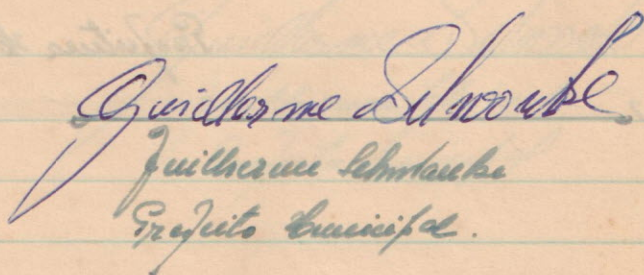 Guilherme Schwanke
Guilherme Schwanke
Prefeito Municipal.